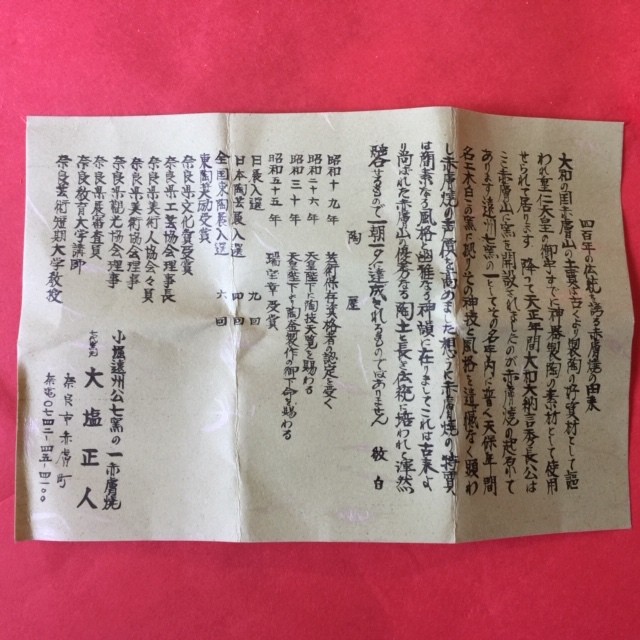 四百年の伝統を誇る赤膚焼の由来
大和の国赤膚山の土質は古くより製陶の好資材として謳
われ垂仁天皇の御宇すでに神器製陶の素材として使用
せられて居ります 降つて天正年間大和大納言秀長公は
こゝ赤膚山に窯を開設されましたのが赤膚焼の起原にて
あります遠州七窯の一としてその名年内に普く天保年間
名工木白この窯に現れその神技と風格を遺憾なく顕わ
し赤膚焼の音價を高めました想うに赤膚焼の特質
は簡素なる風格と幽雅なる神韻に在りましてこれは古来よ
り尚ばれた赤膚山の優秀なる陶土と長き伝統に培われ渾然
融合せるもので一朝一夕に達成されるものではありません 敬白
陶 歴
昭和十九年 芸術保存資格者の認定を受く
昭和二十六年 天皇陛下に陶技天覧を賜わる
昭和三十年 天皇陛下より陶金製作の御下命を賜わる
昭和五十五年 瑞宝章受賞
日展入選 九回
日本陶芸展入選 四回
全国東陶展入選 六回
東陶奨励受賞
奈良県文化賞受賞
奈良県工芸協会理事長
奈良県美術人協会々員
奈良県観光協会理事
奈良県展審査員
奈良教育大学講師
奈良芸術短期大学教授
小堀遠州公七窯の一 赤膚焼
七代窯元 大塩正人
奈良市赤膚町
奈電〇七四二-四五-四一〇〇